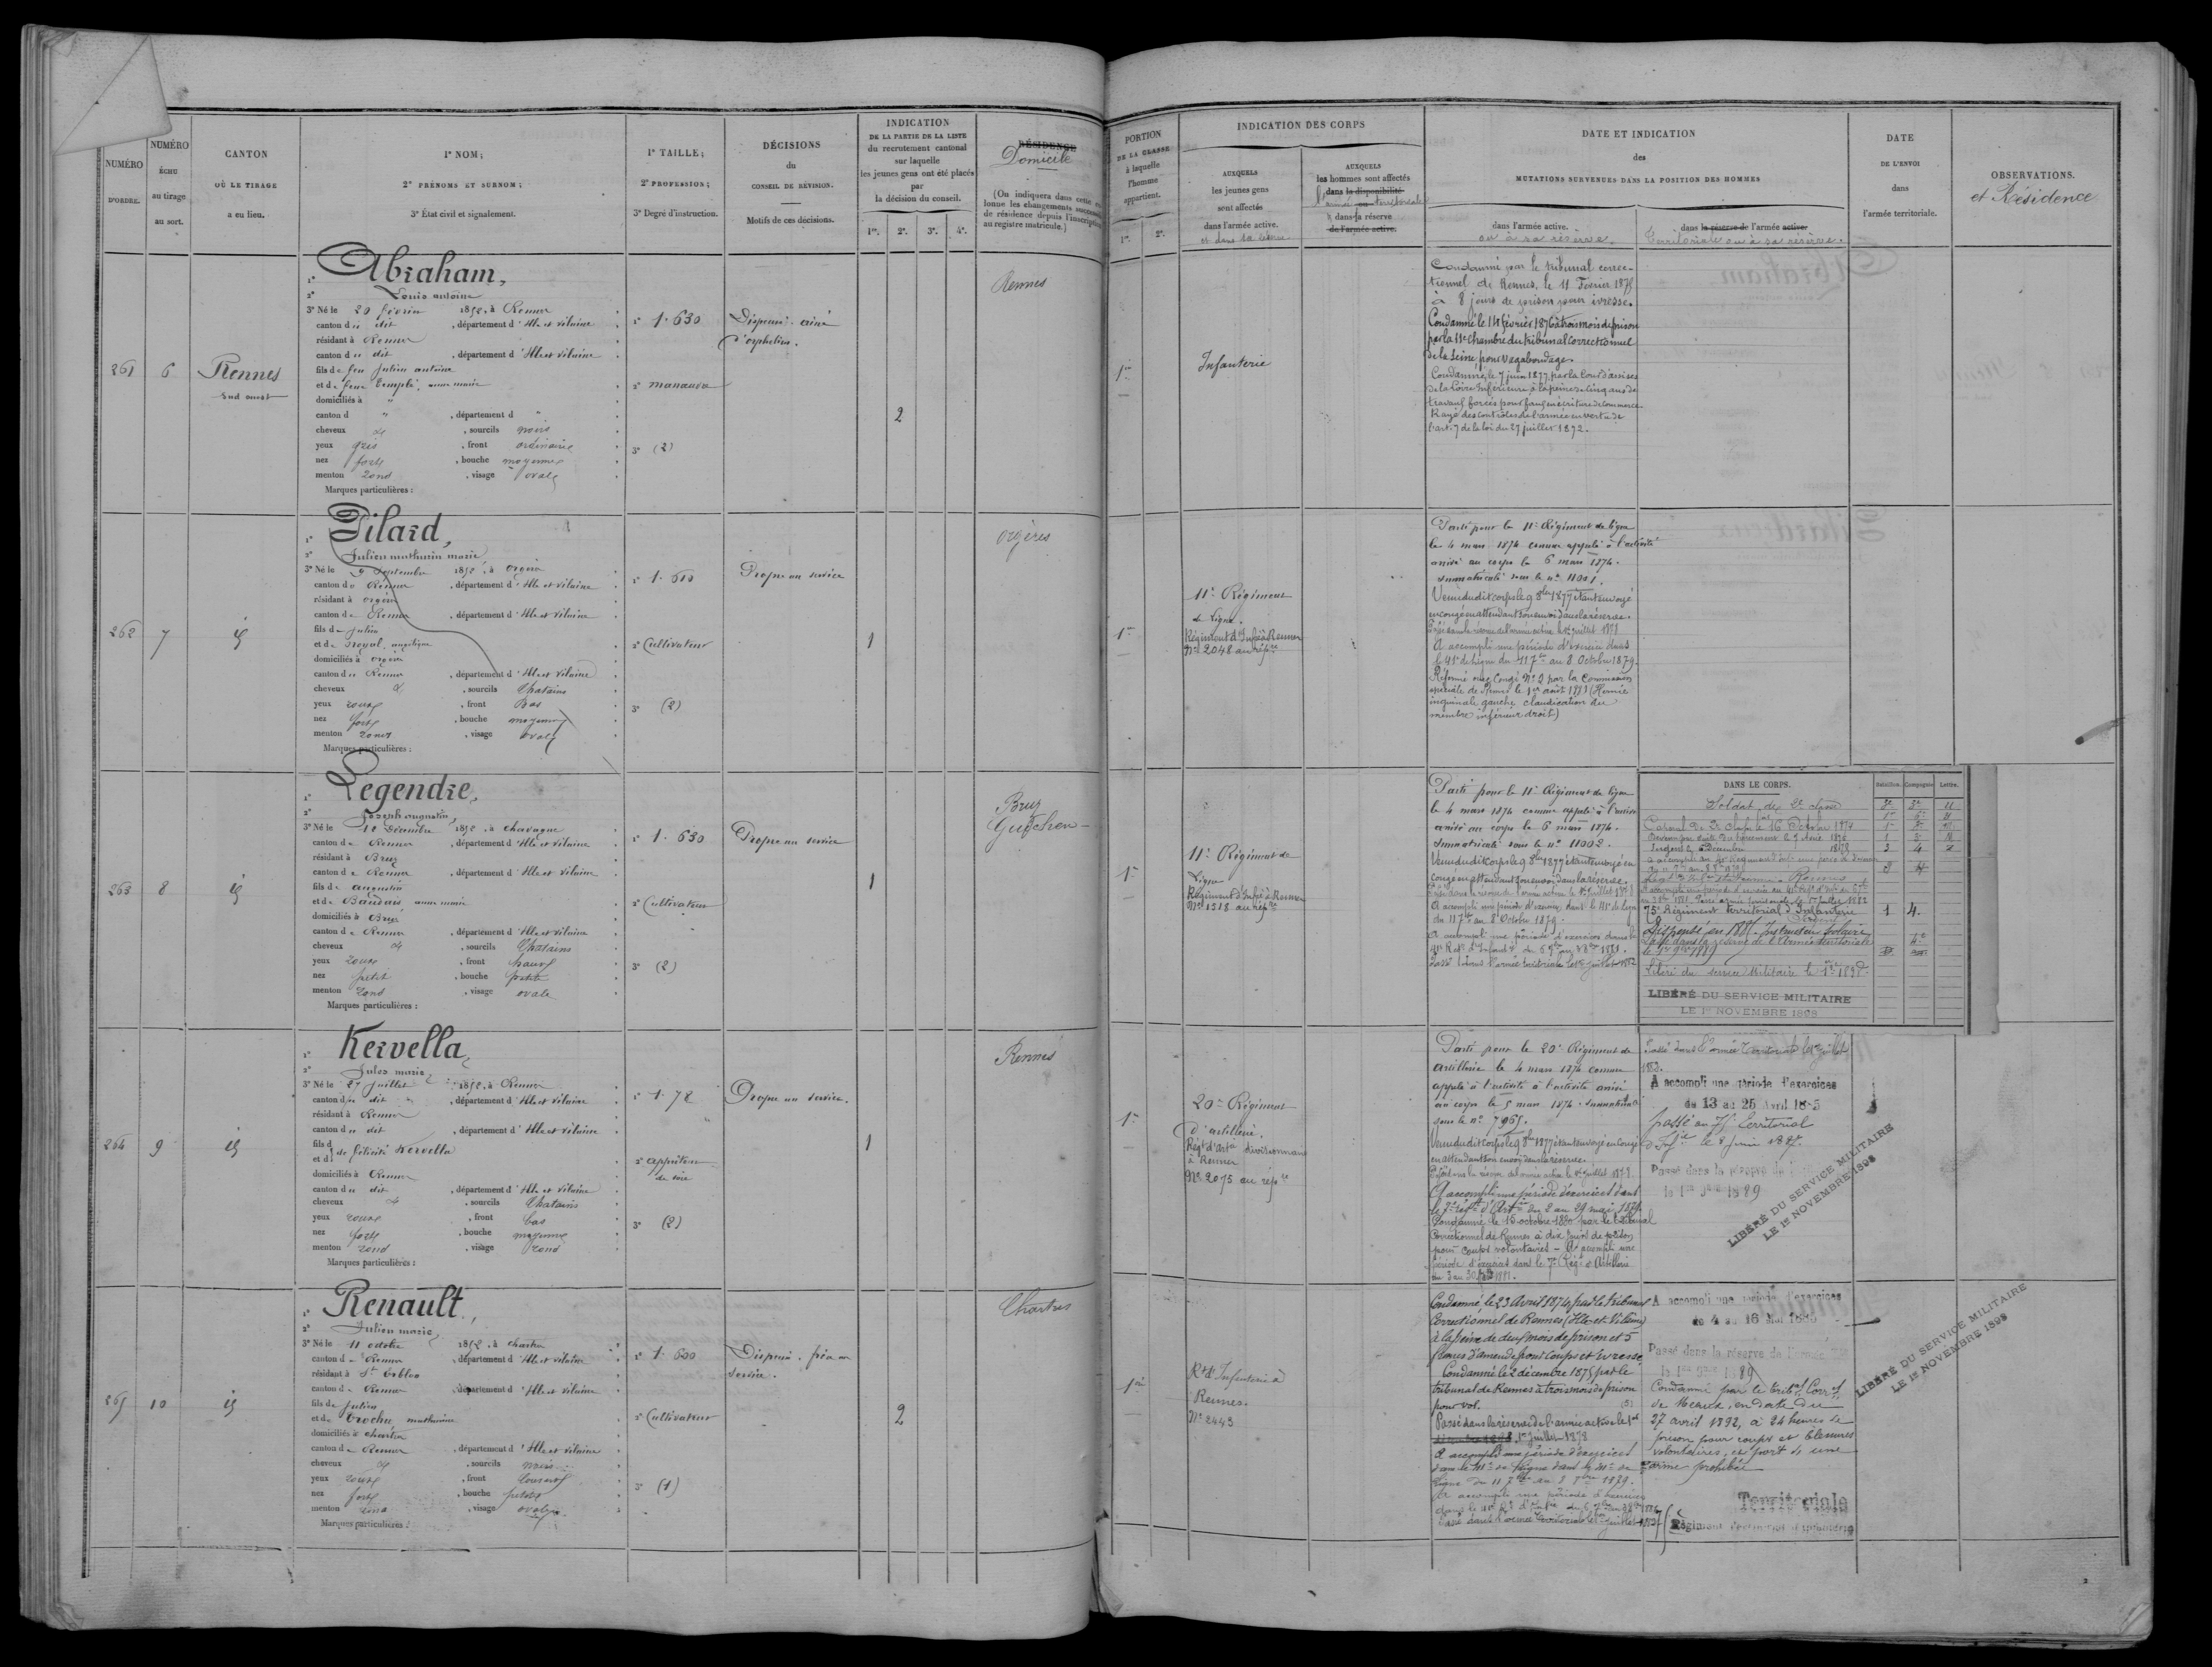 NUMÉRO
D'ORDRE.
NUMÉRO
ÉCHU
au tirage
au sort.
CANTON
OÙ LE TIRAGE
a eu lieu.
1º NOM;
2º PRÉNOMS ET SURNOM;
3º État civil et signalement.
1º TAILLE;
2º PROFESSION;
3º Degré d'instruction.
DÉCISIONS
du
CONSEIL DE RÉVISION.
Motifs de ces décisions.
INDICATION
DE LA PARTIE DE LA LISTE
du recrutement cantonal
sur laquelle
les jeunes gens ont été placés
par
la décision du conseil.
1re. 2e. 3e. 4e.
RÉSIDENCE
Domicile
(On indiquera dans cette
lonne les changements
de résidence depuis l'inscription
au registre matricule.)
261
6
Rennes
sud ouest
Abraham,
Louis antoine
3º Né le 20 février 1852, à Rennes
canton du dit, département d'Ille et vilaine
résidant à Rennes
canton du dit, département d'Ille et vilaine
fils de feu Julien antoine
et de feue
domiciliés à "
canton d ", département d "
cheveux &, sourcils noirs
yeux gris, front ordinaire
nez fort, bouche moyenne
menton rond, visage ovale
Marques particulières :
1º 1.630
3º (2)
Dispensé. ainé
d'orphelins.
2
Rennes
262
7
id
Pilard,
Julien mathurin marie
3º Né le 9 Septembre 1852, à Orgères
canton de Rennes, département d'Ille et vilaine
résidant à orgères
canton de Rennes, département d'Ille et vilaine
fils de Julien
et de Noyal, angélique
domiciliés à orgères
canton de Rennes, département d'Ille et vilaine
cheveux &, sourcils Chatains
yeux roux, front Bas
nez fort, bouche moyenne
menton rond, visage ovale
Marques particulières :
2º Cultivateur
3º (2)
Propre au service
1
Orgères
263
8
id
Legendre,
Joseph augustin,
3º Né le Décembre 1852, à chavagne
canton de Rennes, département d'Ille et vilaine
résidant à Bruz
canton de Rennes, département d'Ille et vilaine
fils de augustin
et de anne marie
domiciliés à Bruz
canton de Rennes, département d'Ille et vilaine
cheveux &, sourcils Chatains
yeux roux, front haut
nez petit, bouche petite
menton rond, visage ovale
Marques particulières :
1º 1.630
2º Cultivateur
3º (2)
Propre au service
1
Bruz
Guichen
264
9
id
Kervella,
Jules marie
3º Né le 27 Juillet 1852, à Rennes
canton du dit, département d'Ille et vilaine
résidant à Rennes
canton du dit, département d'Ille et vilaine
fils d
et d de félicité Kervella
domiciliés à Rennes
canton du dit, département d'Ille et vilaine
cheveux &, sourcils Chatains
yeux roux, front bas
nez fort, bouche moyenne
menton rond, visage rond
Marques particulières :
1º 1.78
3º (2)
Propre au service.
1
Rennes
265
10
id
Renault,
Julien marie,
3º Né le 11 octobre 1852, à chartres
canton de Rennes, département d'Ille et vilaine
résidant à St Erblon
canton de Rennes, département d'Ille et vilaine
fils de Julien
et de Trochu, mathurine
domiciliés à chartres
canton de Rennes, département d'Ille et vilaine
cheveux &, sourcils noirs
yeux roux, front couvert
nez fort, bouche petite
menton rond, visage ovale
Marques particulières :
1º 1.600
2º Cultivateur
3º (1)
Dispensé. frère au
service.
2
Chartres
PORTION
DE LA CLASSE
à laquelle
l'homme
appartient.
1re. 2e.
INDICATION DES CORPS
AUXQUELS
les jeunes gens
sont affectés
dans l'armée active.
et dans la réserve
AUXQUELS
les hommes sont affectés
dans la disponibilité
l'armée territoriale
dans la réserve
de l'armée active.
DATE ET INDICATION
des
MUTATIONS SURVENUES DANS LA POSITION DES HOMMES
dans l'armée active.
ou à sa réserve.
dans la réserve de l'armée active.
Territoriale ou à sa réserve.
DATE
DE L'ENVOI
dans
l'armée territoriale.
OBSERVATIONS.
et Résidence
1re
Infanterie
Condamné par le tribunal correc-
tionnel de Rennes, le 11 Février 1875
à 8 jours de prison pour ivresse.
Condamné le 14 février 1876 à trois mois de prison
par la 11e chambre du tribunal correctionnel
de la Seine pour vagabondage.
Condamné, le 7 juin 1877, par la Cour d'assises
de la Loire Inférieure, à la peine de cinq ans de
travaux forcés pour faux en écriture de commerce
Rayé des contrôles de l'armée en vertu de
l'art. 7 de la loi du 27 juillet 1872.
1re
11e Régiment
de Ligne.
Régiment d'Infie à Rennes
No 2048 au répre
Parti pour le 11e Régiment de ligne
le 4 mars 1874 comme appelé à l'activité
arrivé au corps le 6 mars 1874.
Immatriculé sous le no 11001.
Venu dudit corps le 9 8bre 1877 étant envoyé
en congé en attendant son envoi dans la réserve.
Passé dans la réserve de l'armée active le 1er juillet 1878
A accompli une période d'exercices dans
le 41e de Ligne du 11 7bre au 8 Octobre 1879.
Réformé avec Congé No 2 par la Commission
spéciale de Rennes le 1er août 1881 (Hernie
inguinale gauche claudication du
membre inférieur droit)
1re
11e Régiment de
Ligne
Régiment d'Infie à Rennes
No 1518 au répre
Parti pour le 11e Régiment de ligne
le 4 mars 1874 comme appelé à l'activité
arrivé au corps le 6 mars 1874.
Immatriculé sous le no 11002.
Venu dudit corps le 9 8bre 1877 étant envoyé en
congé en attendant son envoi dans la réserve.
Passé dans la réserve de l'armée active le 1er Juillet 1878
A accompli une période d'exercices dans le 41e de Ligne
du 11 7bre au 8 Octobre 1879.
A accompli une période d'exercices dans le
Passé dans l'armée territoriale le 1er juillet 1882
DANS LE CORPS. Bataillon. Compagnie. Lettre.
Soldat de 2e classe
Caporal le 16 Octobre 1874
75e Régiment territorial d'Infanterie 1 4.
Dispensé en 1887. Instructeur Scolaire
Passé dans la réserve de l'Armée territoriale
le 1er 9bre 1889
Libéré du service Militaire le
LIBÉRÉ DU SERVICE MILITAIRE
LE 1er NOVEMBRE 1898
1re
20e Régiment
d'artillerie.
Régt d'Artie divisionnaire
à Rennes
No 2075 au répre
Parti pour le 20e Régiment de
artillerie le 4 mars 1874 comme
appelé à l'activité à l'activité arrivé
au corps le 5 mars 1874. Immatriculé
sous le no 7965.
Venu dudit corps le 9 8bre 1877 étant envoyé en congé
en attendant son envoi dans la réserve.
Passé dans la réserve de l'armée active le 1er Juillet 1878.
A accompli une période d'exercices dans
le 7e régt d'Artie du 2 au 29 mai 1879
Condamné le 16 octobre 1880 par le tribunal
Correctionnel de Rennes à dix jours de prison
pour coups volontaires - A accompli une
période d'exercices dans le 7e Régt d'Artillerie
Passé dans l'armée Territoriale le 1er juillet
A accompli une période d'exercices
du 13 au 25 Avril 1885
passé au 75e territorial
d'Infie le 8 juin 1887.
Passé dans la réserve de
le 1er 9bre 1889
LIBÉRÉ DU SERVICE MILITAIRE
LE 1er NOVEMBRE 1898
1re
Rt d'Infanterie à
Rennes.
No 2443
Condamné, le 23 Avril 1874, par le tribunal
Correctionnel de Rennes (Ille-et-Vilaine)
à la peine de deux mois de prison et 5
francs d'amende pour coups et ivresse.
Condamné le 2 décembre 1875 par le
tribunal de Rennes à trois mois de prison
pour vol.
Passé dans la réserve de l'armée active le
1er Juillet 1878
A accompli une période d'exercices
Passé dans l'armée territoriale le 1er juillet
A accompli une période d'exercices
du 4 au 16 Mai 1885
Passé dans la réserve de l'armée
le 1er 9bre 1889
Condamné par le tribal Correl
de Meaux, en date du
27 avril 1892, à 24 heures de
prison pour coups et blessures
volontaires, et port de une
arme prohibée
Territoriale
Régiment territorial d'infanterie
LIBÉRÉ DU SERVICE MILITAIRE
LE 1er NOVEMBRE 1898